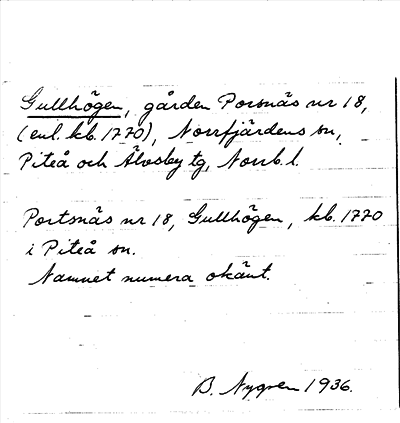 Gullhögen, gården Porsnäs nr 18,
(enl. kb. 1770), Norrfjärdens sn,
Piteå och Älvsby tg, Norrb. l.
Portsnäs nr 18, Gullhögen, kb. 1770
i Piteå sn.
Namnet numera okänt.
B. Nygren 1936.